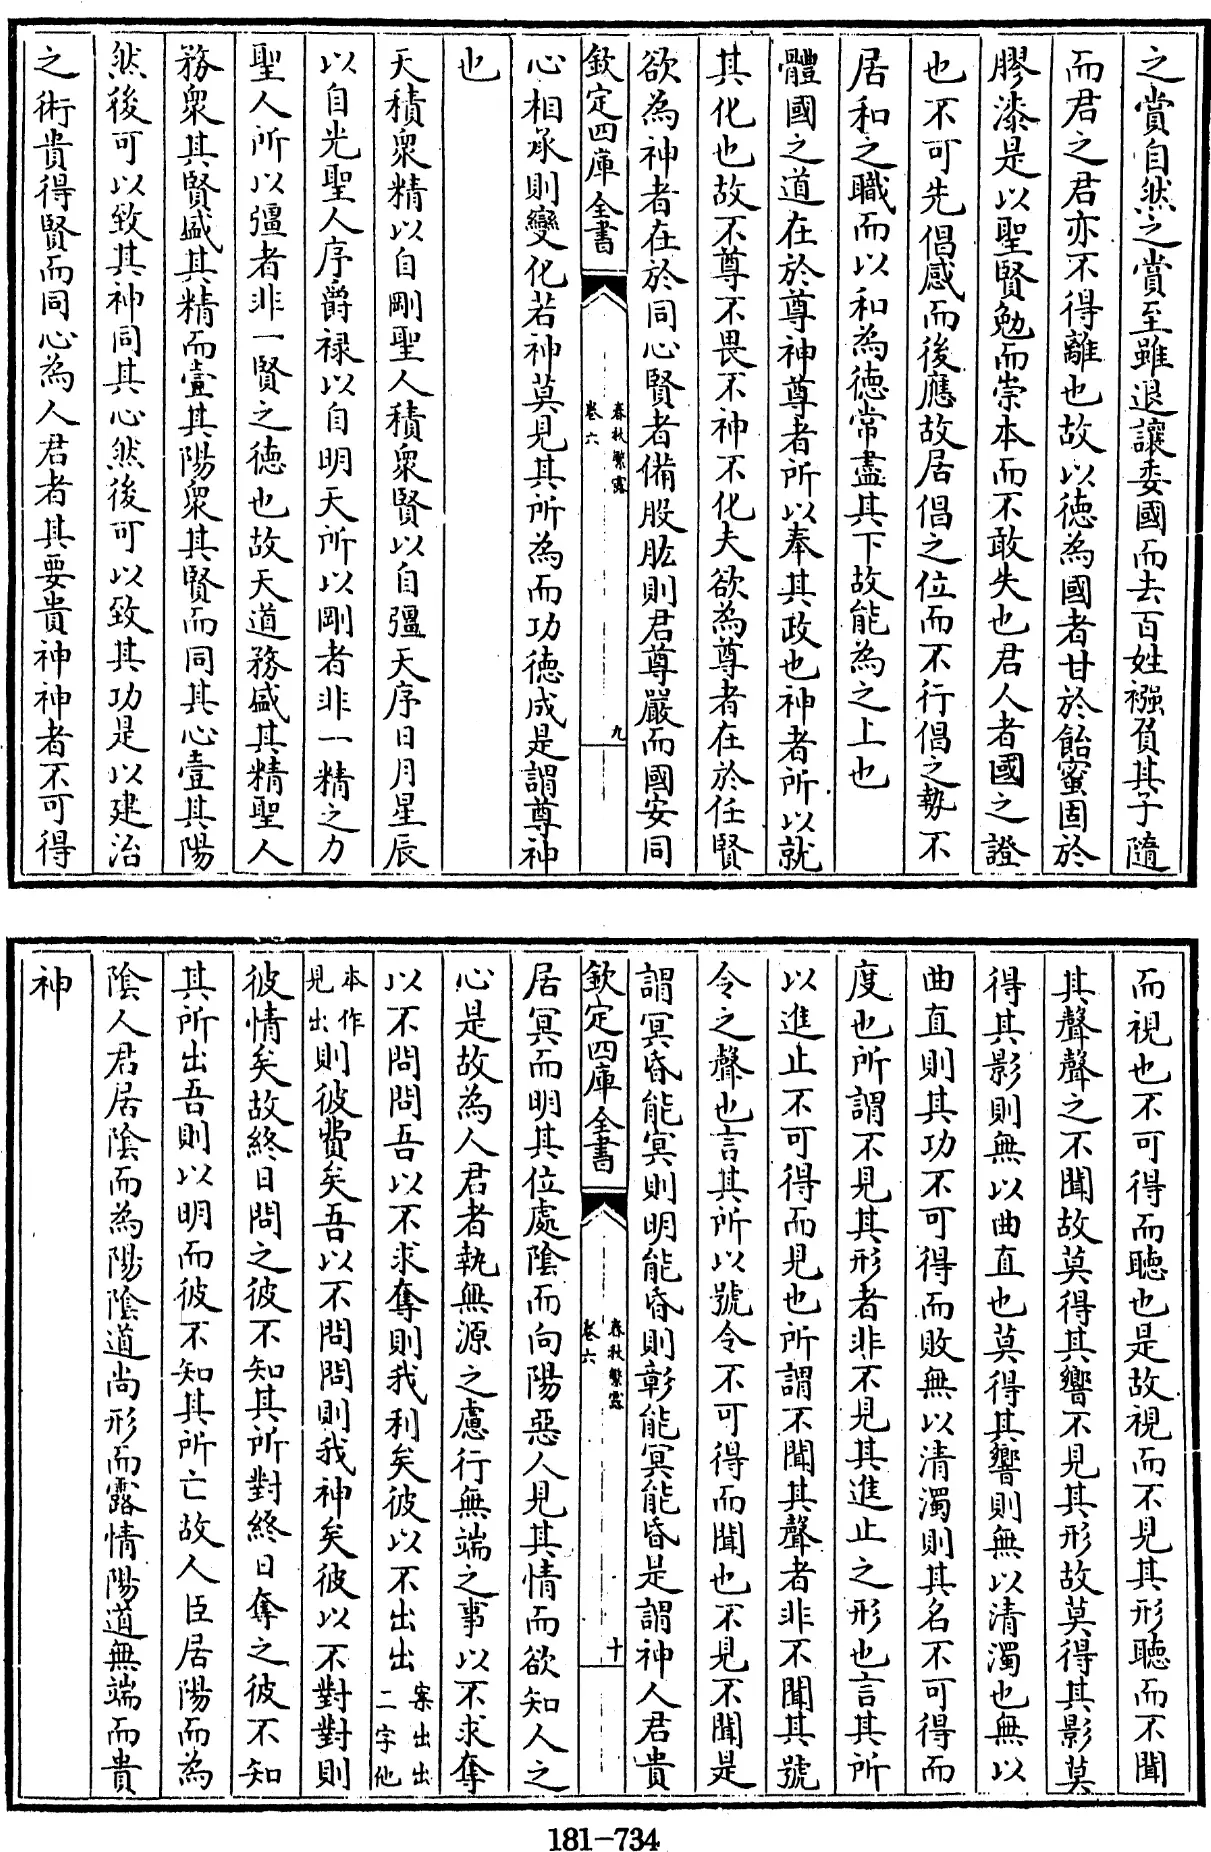 之賞自然之賞至雖退讓委國而去百姓襁負其子隨
而君之君亦不得離也故以德為國者甘於飴蜜固於
膠漆是以聖賢勉而崇本而不敢失也君人者國之證
也不可先倡感而後應故居倡之位而不行倡之勢不
居和之職而以和為德常盡其下故能為之上也
體國之道在於尊神尊者所以奉其政也神者所以就
其化也故不尊不畏不神不化夫欲為尊者在於任賢
欲為神者在於同心賢者備股肱則君尊嚴而國安同
欽定四庫全書
春秋繁露
卷六
九
心相承則變化若神莫見其所為而功德成是謂尊神
也
天積衆精以自剛聖人積衆賢以自彊天序日月星辰
以自光聖人序爵禄以自明天所以剛者非一精之力
聖人所以彊者非一賢之德也故天道務盛其精聖人
務衆其賢盛其精而壹其陽衆其賢而同其心壹其陽
然後可以致其神同其心然後可以致其功是以建治
之術貴得賢而同心為人君者其要貴神神者不可得
而視也不可得而聽也是故視而不見其形聽而不聞
其聲聲之不聞故莫得其響不見其形故莫得其影莫
得其影則無以曲直也莫得其響則無以清濁也無以
曲直則其功不可得而敗無以清濁則其名不可得而
度也所謂不見其形者非不見其進止之形也言其所
以進止不可得而見也所謂不聞其聲者非不聞其號
令之聲也言其所以號令不可得而聞也不見不聞是
謂冥昏能冥則明能昏則彰能冥能昏是謂神人君貴
欽定四庫全書
春秋繁露
卷六
十
居冥而明其位處陰而向陽惡人見其情而欲知人之
心是故為人君者執無源之慮行無端之事以不求奪
以不問問吾以不求奪則我利矣彼以不出出案出出二字他
本作見出則彼費矣吾以不問問則我神矣彼以不對對則
彼情矣故終日問之彼不知其所對終日奪之彼不知
其所出吾則以明而彼不知其所亡故人臣居陽而為
陰人君居陰而為陽陰道尚形而露情陽道無端而貴
神
181-734